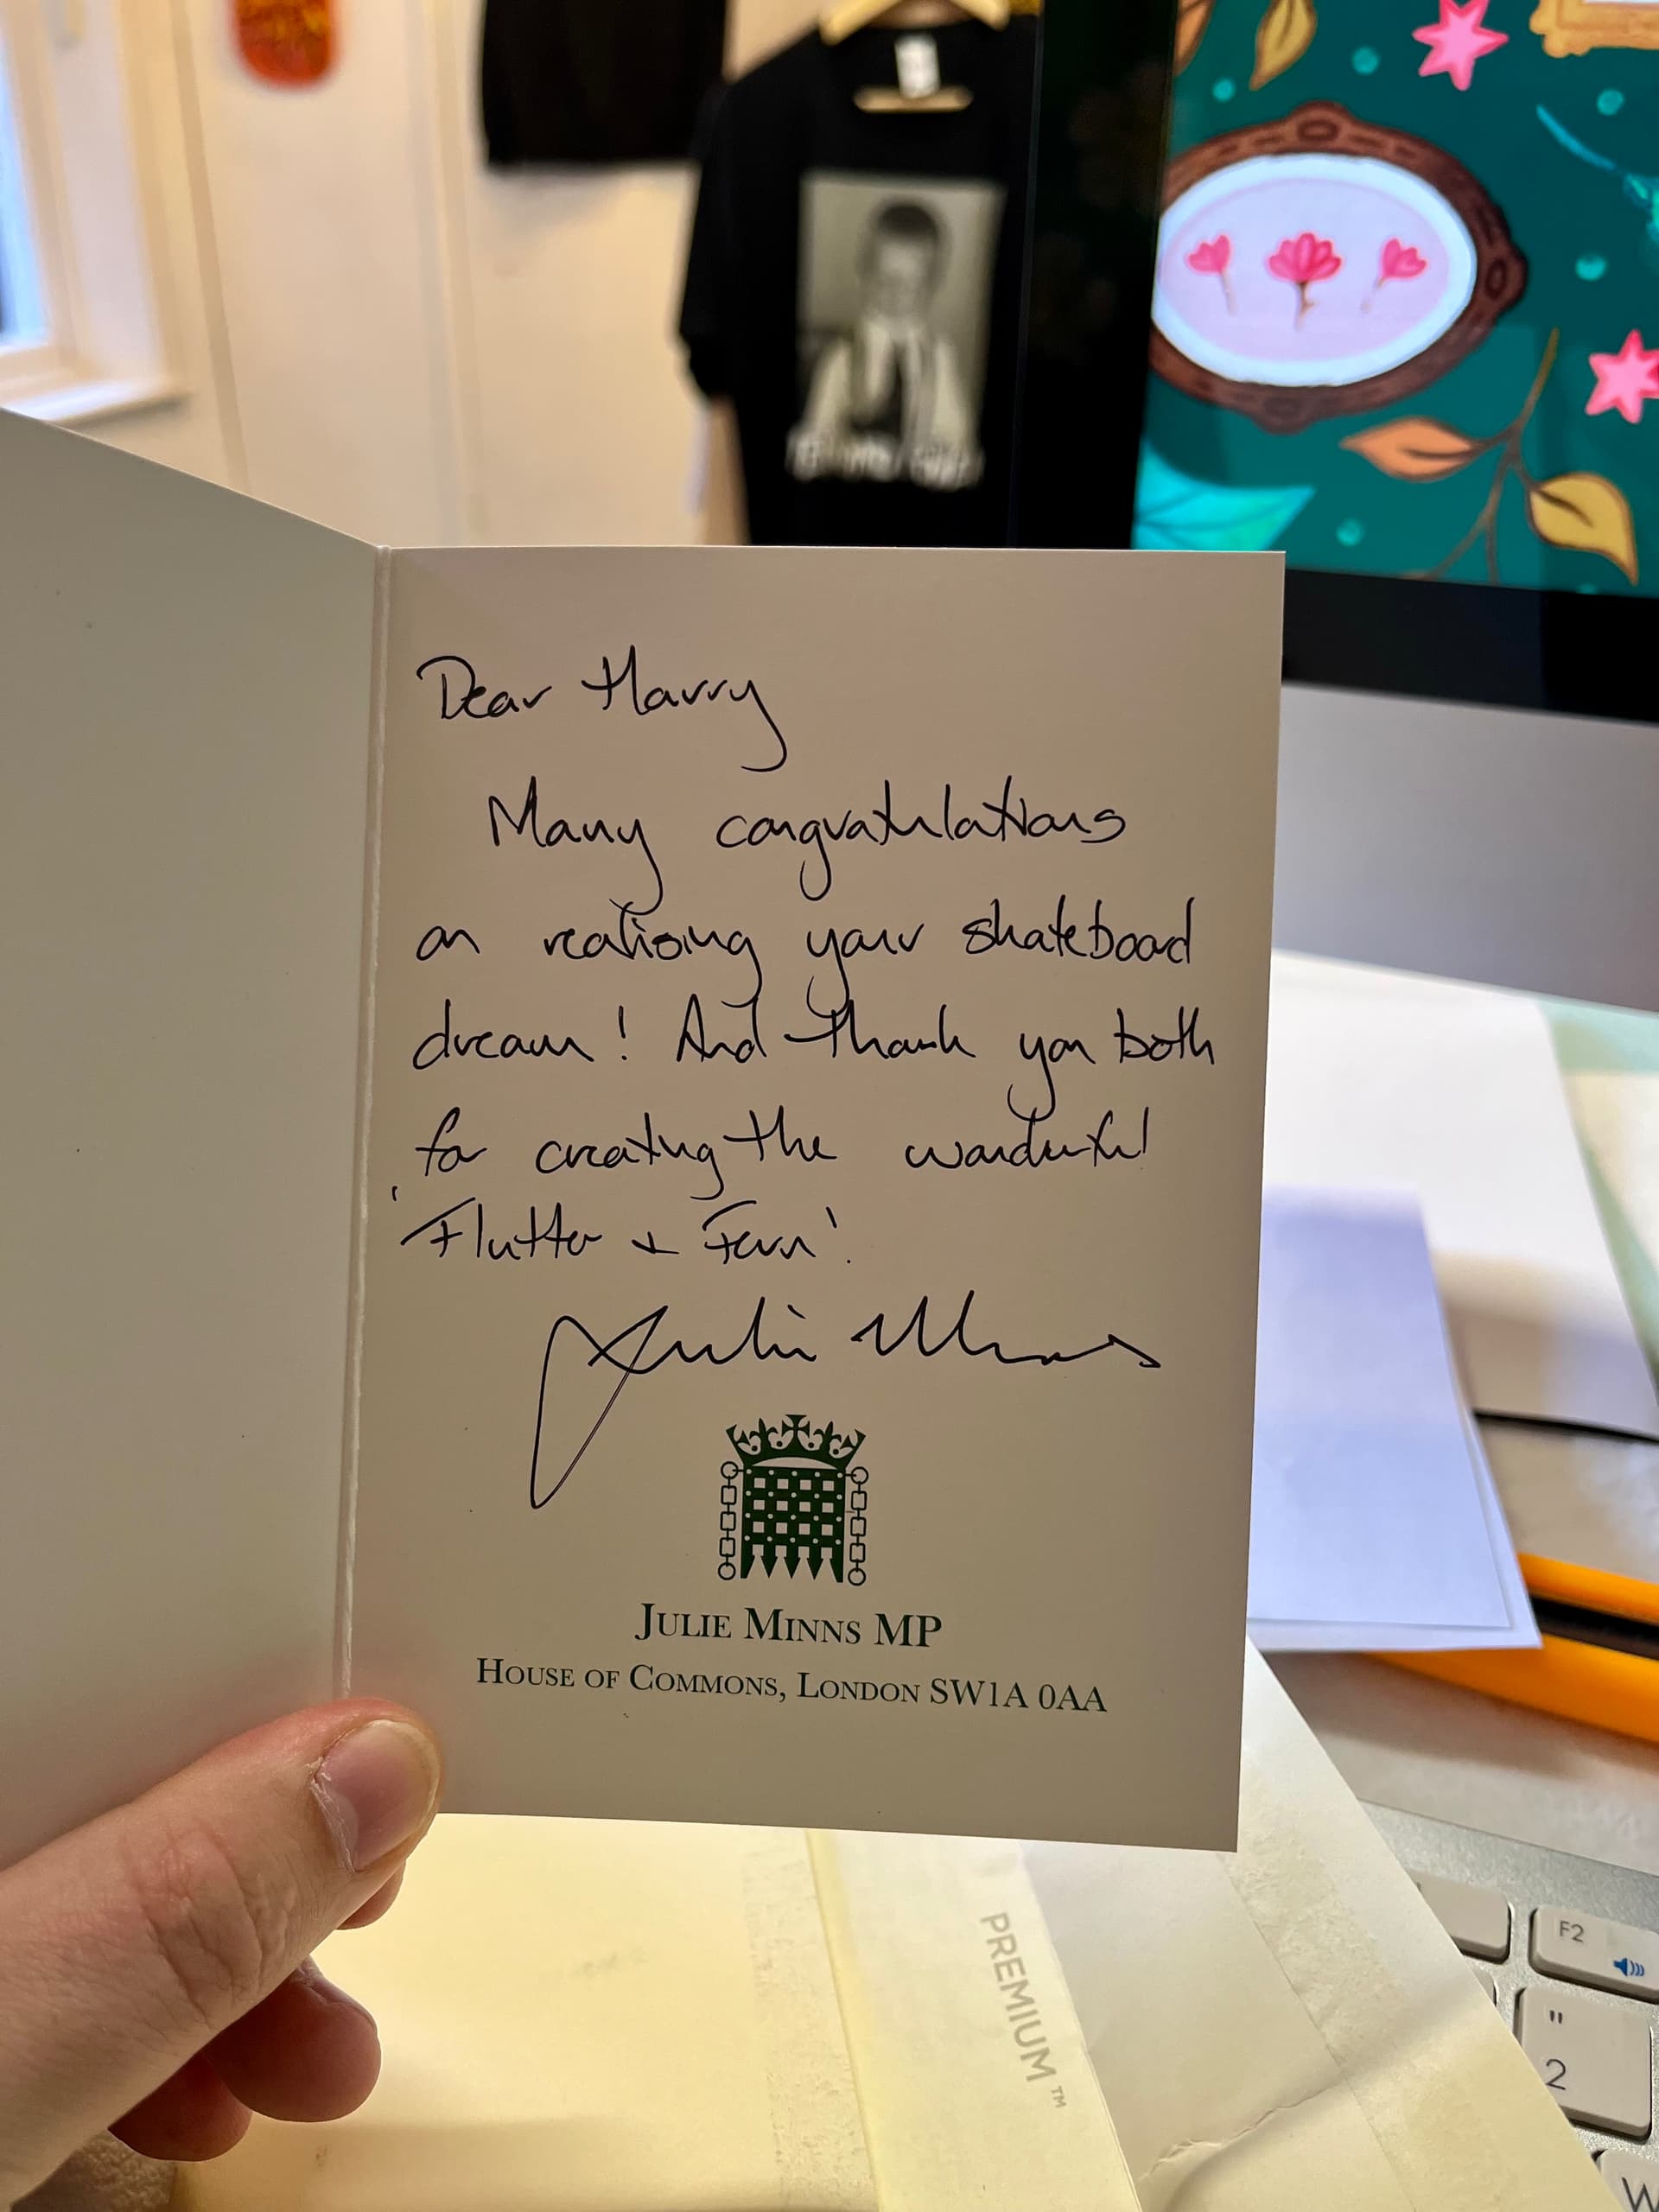 Dear Harry
Many congratulations
on realising your skateboard
dream! And thank you both
for creating the wonderful
'Flutter & Fern'.
Julie Minns
JULIE MINNS MP
HOUSE OF COMMONS, LONDON SW1A 0AA
PREMIUM™
F2
"
2
W